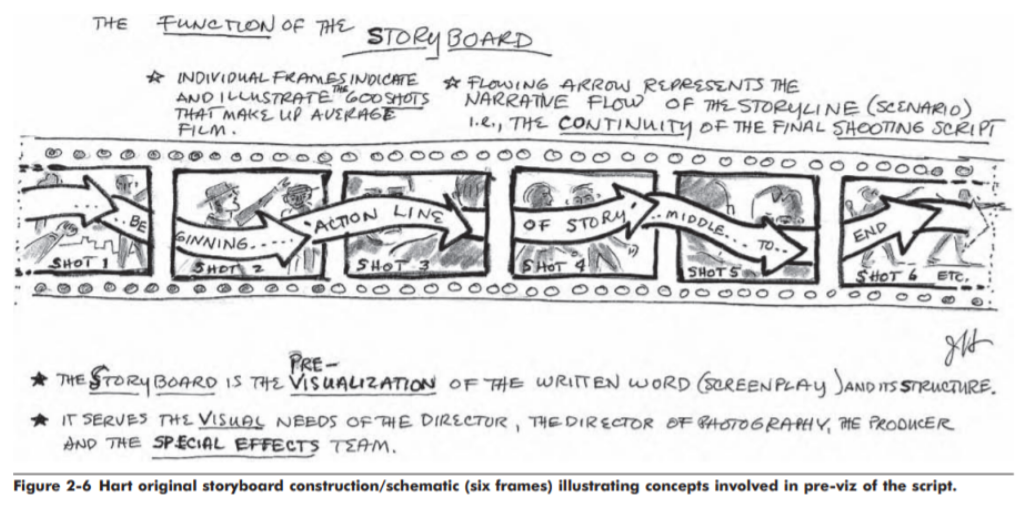 THE FUNCTION OF THE STORYBOARD
☆ INDIVIDUAL FRAMES INDICATE
AND ILLUSTRATE THE 600 SHOTS
THAT MAKE UP AVERAGE
FILM.
☆ FLOWING ARROW REPRESENTS THE
NARRATIVE FLOW OF THE STORYLINE (SCENARIO)
I.E., THE CONTINUITY OF THE FINAL SHOOTING SCRIPT
..BE
GINNING.....
"ACTION LINE
OF STORY"
..MIDDLE...
TO...
END
SHOT 1
SHOT 2
SHOT 3
SHOT 4
SHOT 5
SHOT 6 ETC.
JH
★ THE STORYBOARD IS THE PRE-VISUALIZATION OF THE WRITTEN WORD (SCREENPLAY) AND ITS STRUCTURE.
★ IT SERVES THE VISUAL NEEDS OF THE DIRECTOR, THE DIRECTOR OF PHOTOGRAPHY, THE PRODUCER
AND THE SPECIAL EFFECTS TEAM.
Figure 2-6 Hart original storyboard construction/schematic (six frames) illustrating concepts involved in pre-viz of the script.